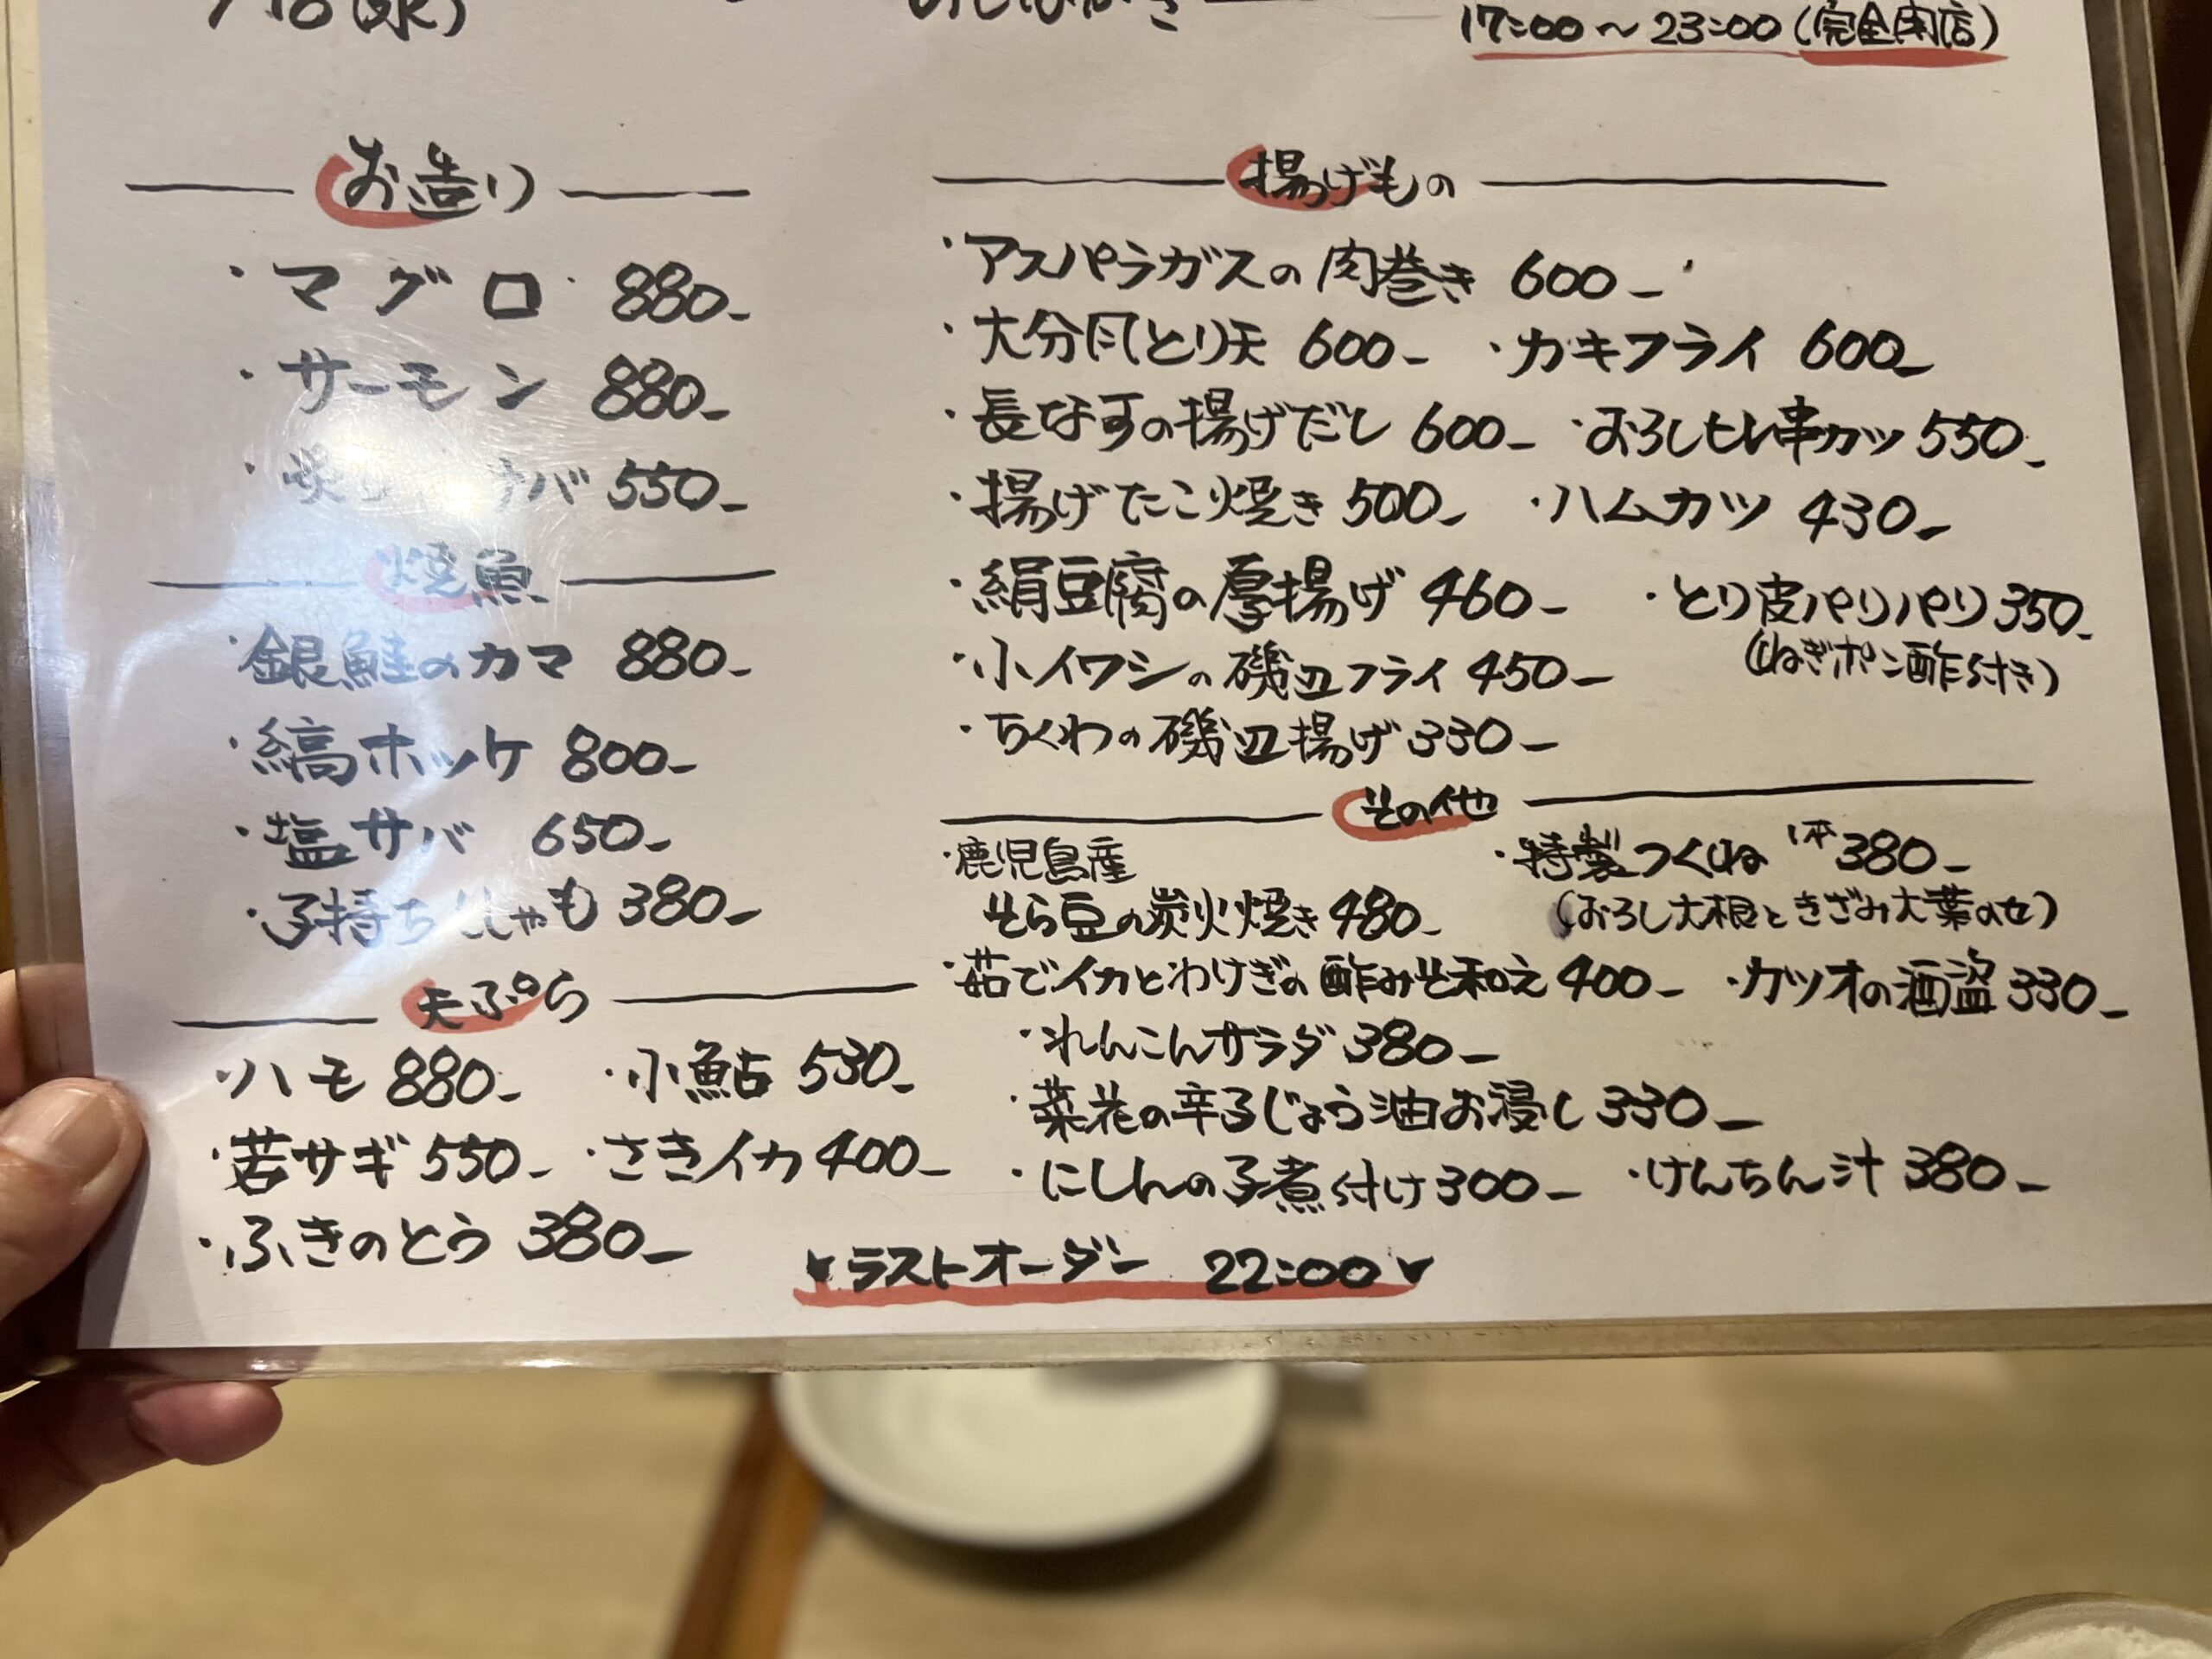 17:00～23:00(完全閉店)
お造り
・マグロ 880-
・サーモン 880-
サバ 550-
焼魚
・銀鮭のカマ 880-
・縞ホッケ 800-
・塩サバ 650-
・子持ちししゃも 380-
天ぷら
・ハモ 880- ・小鮎 530-
・若サギ 550- ・さきイカ 400-
・ふきのとう 380-
揚げもの
・アスパラガスの肉巻き 600-
・大分風とり天 600- ・カキフライ 600-
・長なすの揚げだし 600- ・おろしヒレ串カツ 550-
・揚げたこ焼き 500- ・ハムカツ 430-
・絹豆腐の厚揚げ 460- ・とり皮パリパリ 350-
(ねぎポン酢付き)
・小イワシの磯辺フライ 450-
・ちくわの磯辺揚げ 330-
その他
・鹿児島産
そら豆の炭火焼き 480-
・特製つくね 1本 380-
(おろし大根ときざみ大葉のせ)
・茹でイカとわけぎの酢みそ和え 400- ・カツオの酒盗 330-
・れんこんサラダ 380-
・菜花の辛子じょう油お浸し 330-
・にしんの子煮付け 300- ・けんちん汁 380-
ラストオーダー 22:00